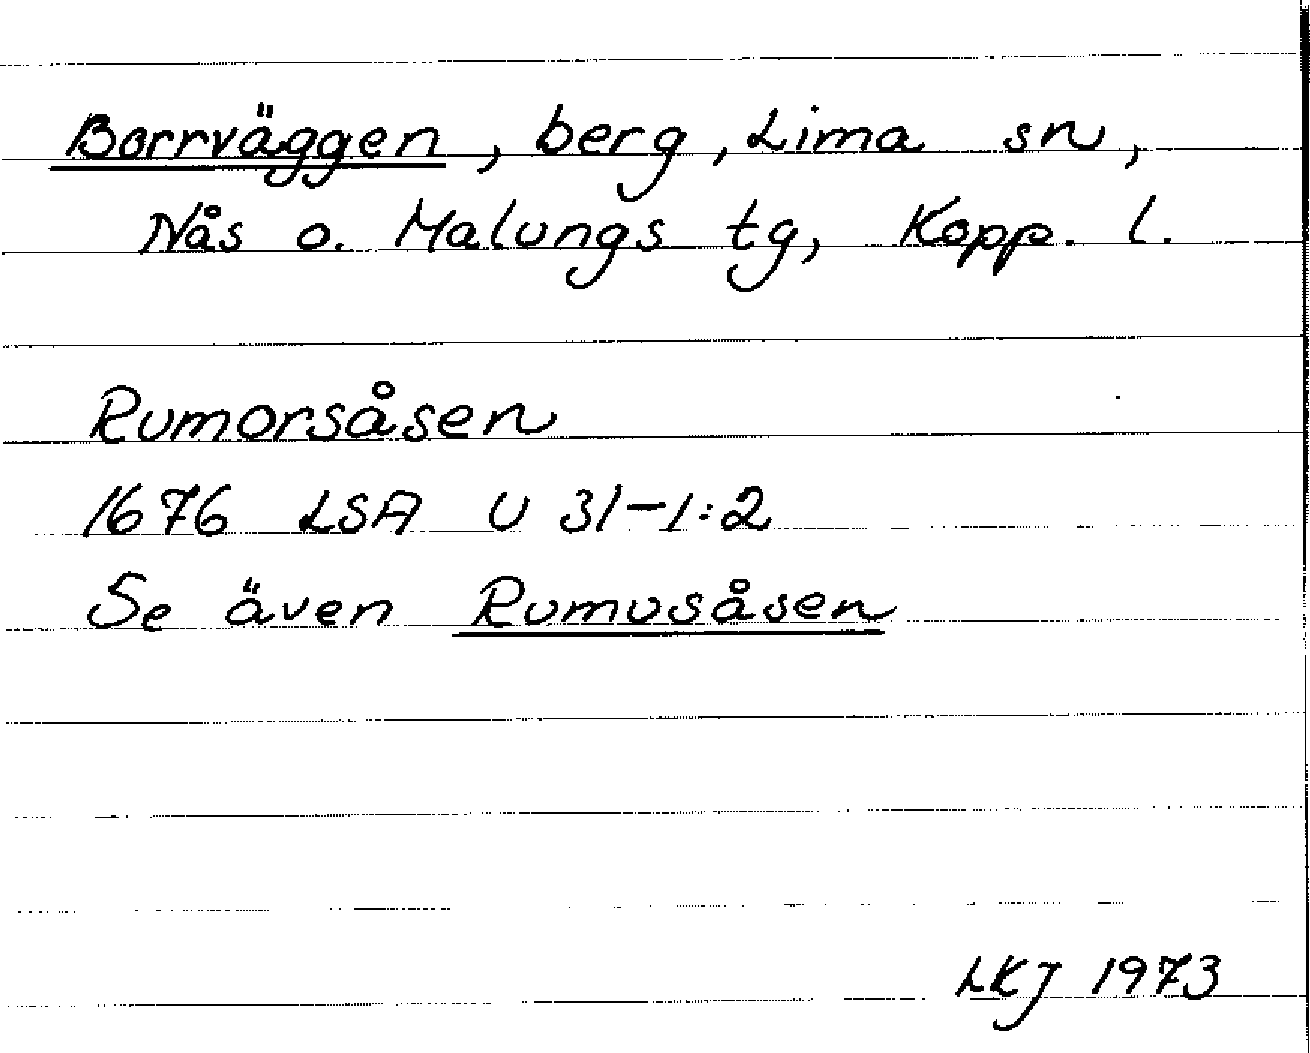 Borrväggen, berg, Lima sn,
Nås o. Malungs tg, Kopp. l.
Rumorsåsen
1676 LSA U 31-1:2
Se även Rumusåsen
LKJ 1973